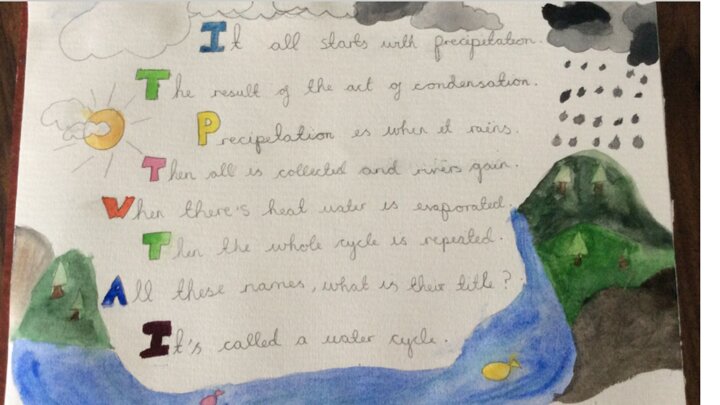 It all starts with precipitation.
The result of the act of condensation.
Precipitation is when it rains.
Then all is collected and rivers gain.
When there's heat water is evaporated.
Then the whole cycle is repeated.
All these names, what is their title?
It's called a water cycle.